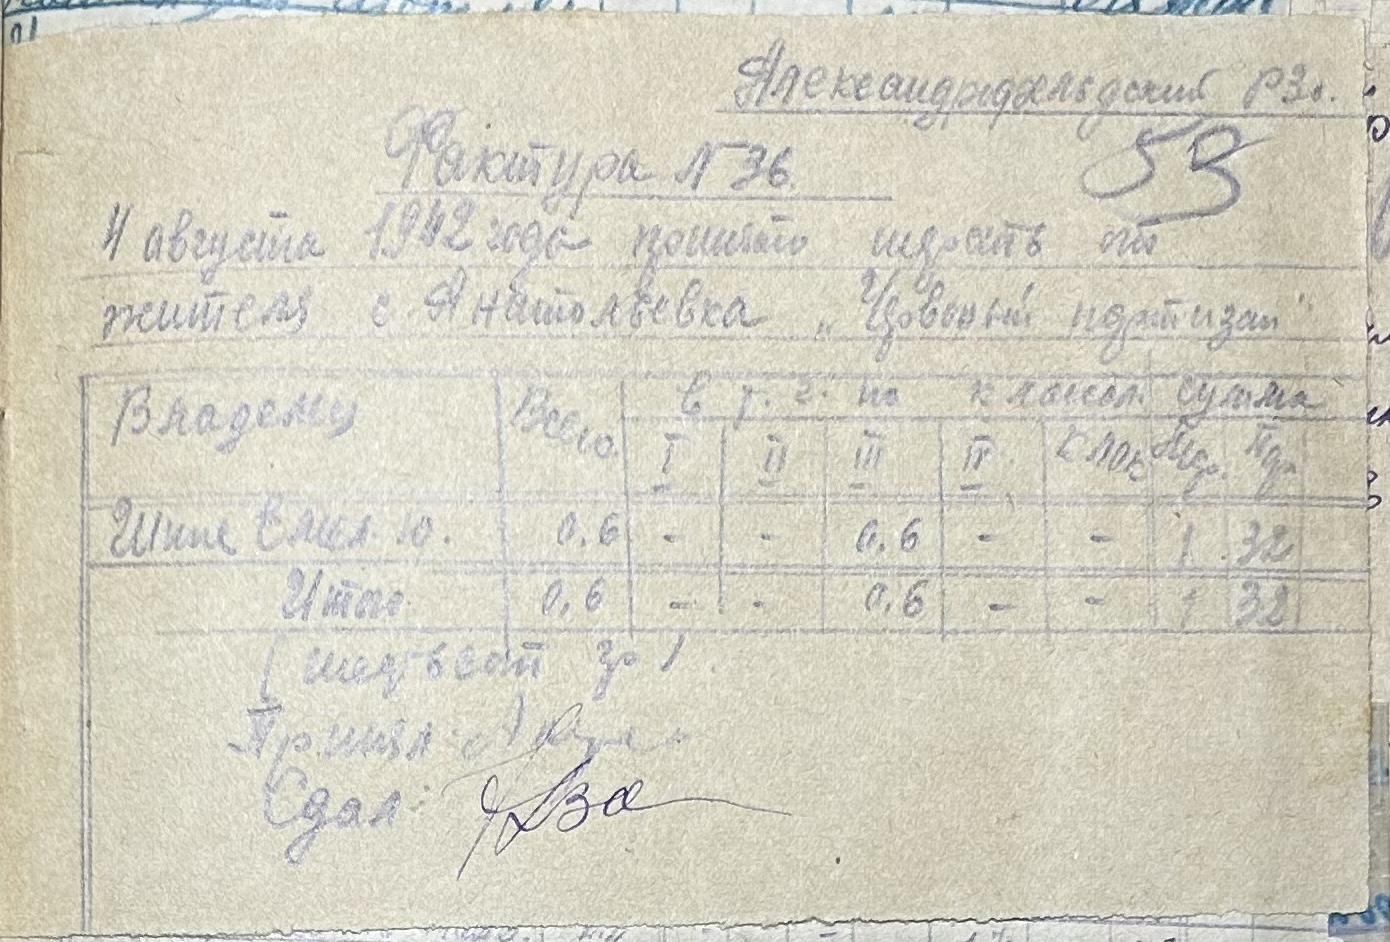 Александрфельдский РЗо.
53
Фактура N 36
4 августа 1942 года принято шерсть от
жителя с Анатольевка „ партизан"
Владелец Всего в т. ч. по классам Сумма
I II III IV Клок
Шпис Емел Ю. 0.6 - - 0.6 - - 1 32
Итого 0,6 - - 0,6 - - 1 32
(шестьсот гр)
Принял
Сдал: